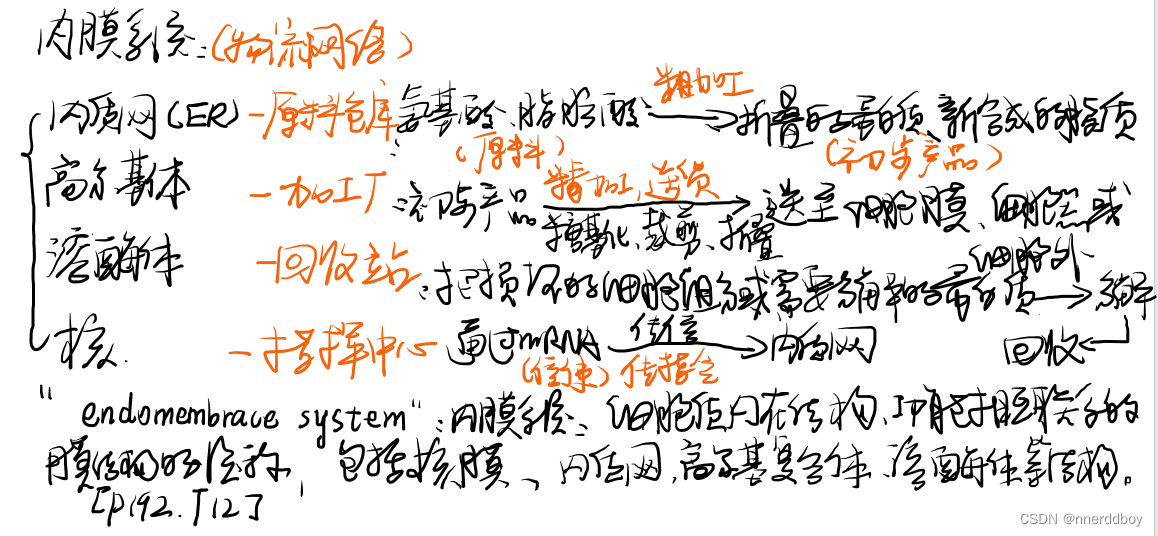 内膜系统：(物流网络)
内质网(ER) —原料仓库：氨基酸、脂肪酸 粗加工→ 折叠的蛋白质、新合成的脂质
(原料) (初步产品)
高尔基体 —加工厂：初步产品 精加工,送货→ 送至细胞膜、细胞器或细胞外
糖基化、裁剪、折叠
溶酶体 —回收站：把损坏的细胞组分或需要降解的蛋白质→降解
核 —指挥中心 通过mRNA 传信→内质网 回收
(信使) 传指令
"endomembrace system"：内膜系统：细胞质内在结构、功能
膜结构的总称，包括核膜、内质网,高尔基复合体、溶酶体等结构。
[P192.T12]
CSDN @nnerddboy